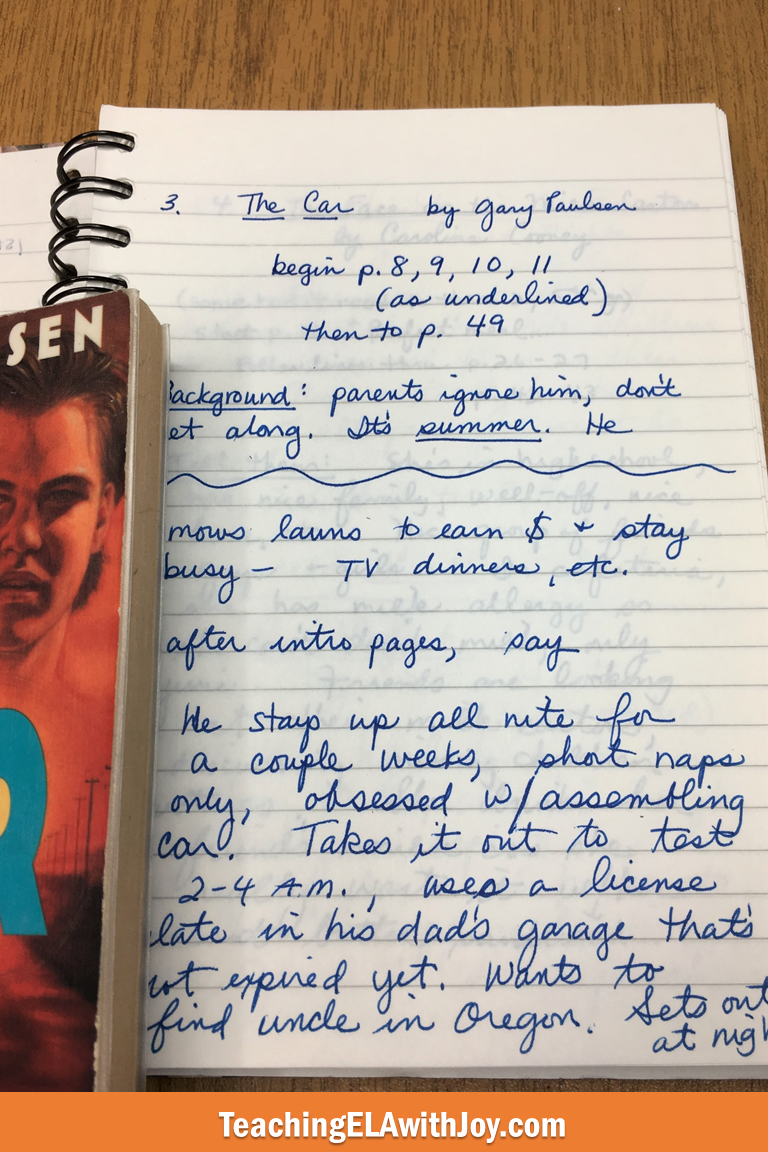 3. The Car by Gary Paulsen
begin p. 8, 9, 10, 11
(as underlined)
then to p. 49
ackground: parents ignore him, don't
et along. It's summer. He
mows lawns to earn $ + stay
busy — TV dinners, etc.
after intro pages, say
He stays up all nite for
a couple weeks, short naps
only, obsessed w/assembling
car. Takes it out to test
2-4 A.M., uses a license
late in his dad's garage that's
not expired yet. Wants to
find uncle in Oregon. Sets out
at nigh
SEN
R
TeachingELAwithJoy.com